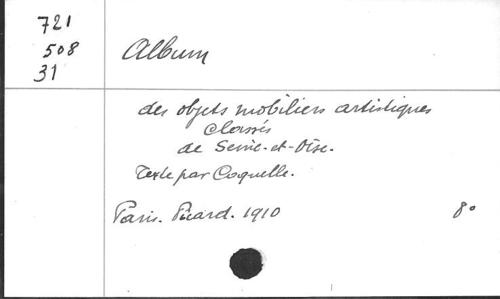 721
508
31
Album
des objets mobiliers artistiques
classés
de Seine-et-Oise.
Texte par Coquelle.
Paris. Picard. 1910
8º